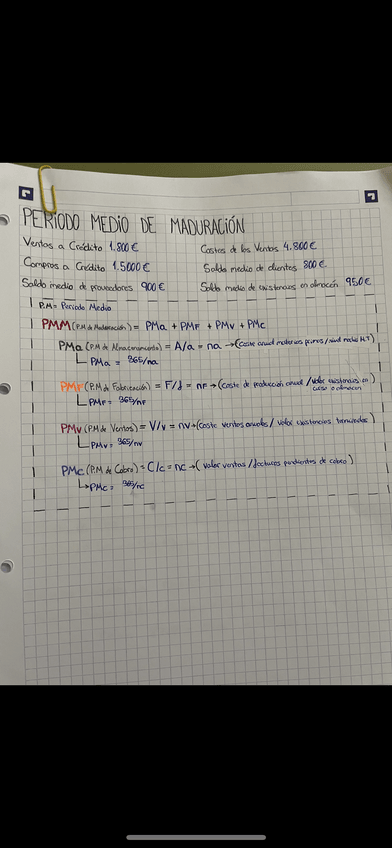 PERIODO MEDIO DE MADURACIÓN
Ventas a Crédito 1.800 €
Costes de las Ventas 4.800 €
Compras a Crédito 1.5000 €
Saldo medio de clientes 800 €.
Saldo medio de proveedores 900 €
Saldo medio de existencias en almacén 950 €
P.M = Periodo Medio
PMM (P.M de Maduración) = PMa + PMF + PMv + PMc
PMa (P.M de Almacenamiento) = A/a = na → (coste anual materias primas / nivel medio M.P)
PMa = 365/na
PMF (P.M de Fabricación) = F/f = nF → (Coste de producción anual / Valor existencias en curso o almacen)
PMF = 365/nF
PMv (P.M de Ventas) = V/v = nv → (coste ventas anuales / valor existencias terminadas)
PMv = 365/nv
PMc (P.M de Cobro) = C/c = nc → (valor ventas / facturas pendientes de cobro)
PMc = 365/nc